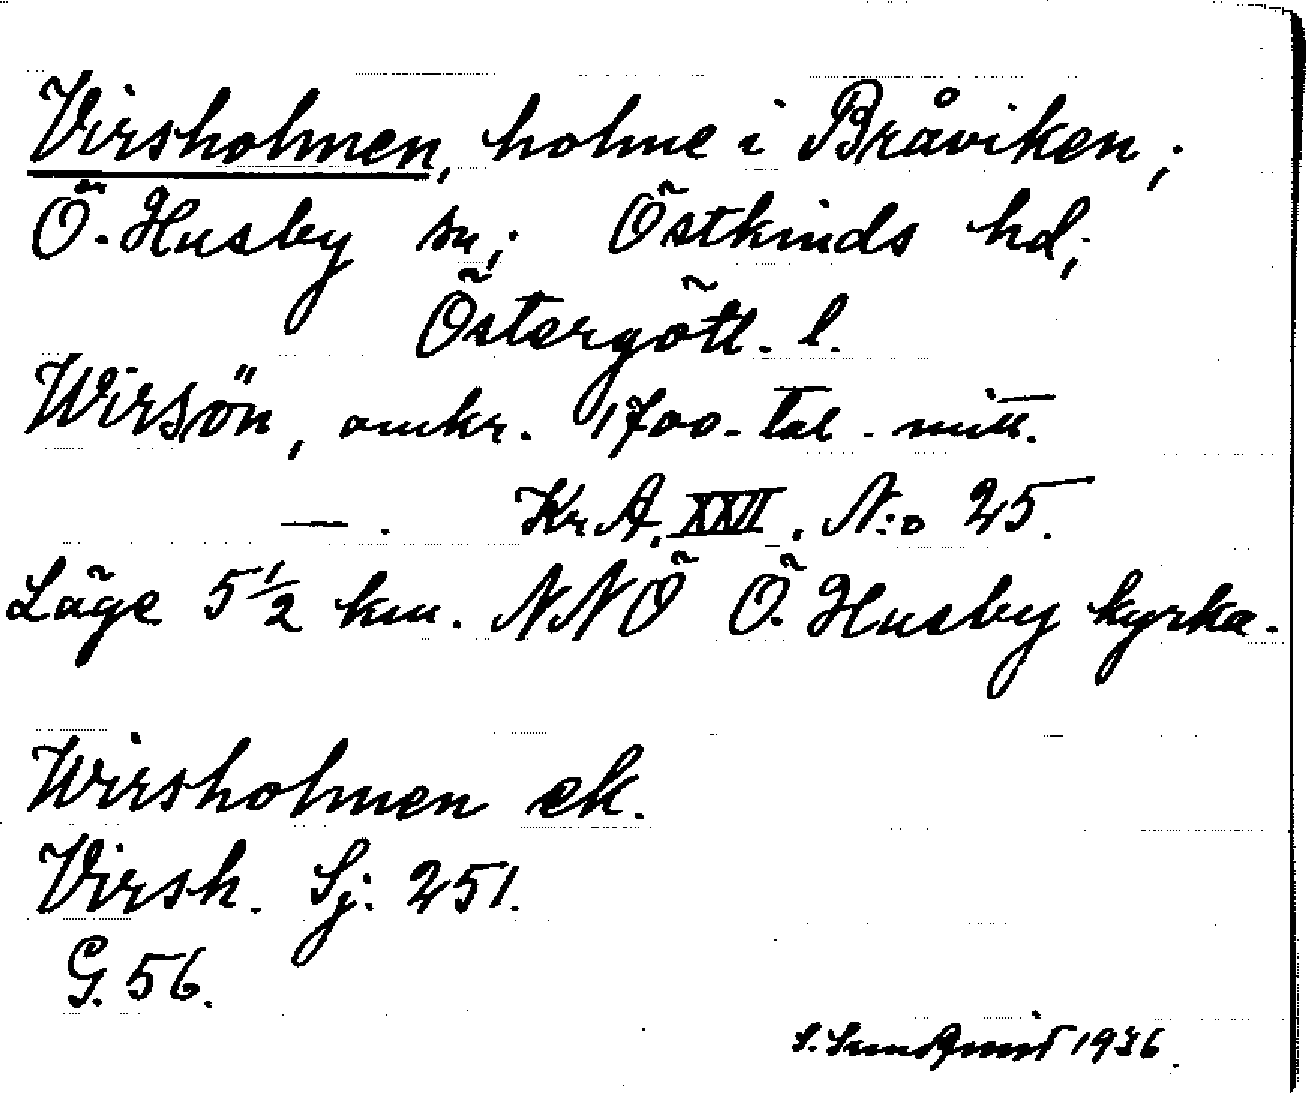 Virsholmen, holme i Bråviken;
Ö. Husby sn; Östkinds hd;
Östergötl. l.
Wirsön, omkr. 1700-tal. mitt.
— . Kr A. XXII. N:o 25.
Läge 5 1/2 km. NNÖ Ö. Husby kyrka.
Wirsholmen ek.
Virsh. Sj: 251.
G. 56.
S. Sundqvist 1936.